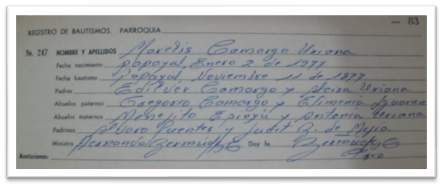 — 83
REGISTRO DE BAUTISMOS. PARROQUIA
No. 247 NOMBRE Y APELLIDOS Marelis Camargo Uriana
Fecha nacimiento Papayal, Enero 2 de 1977
Fecha bautismo Papayal, Noviembre 11 de 1977
Padres Edilver Camargo y Uriana
Abuelos paternos Camargo y
Abuelos maternos Epieyú y Antonia Uriana
Padrinos Alvaro Fuentes y Judit B. de Mejia
Ministro Hernando Bermúdez Doy fe, Bermúdez
Anotaciones: